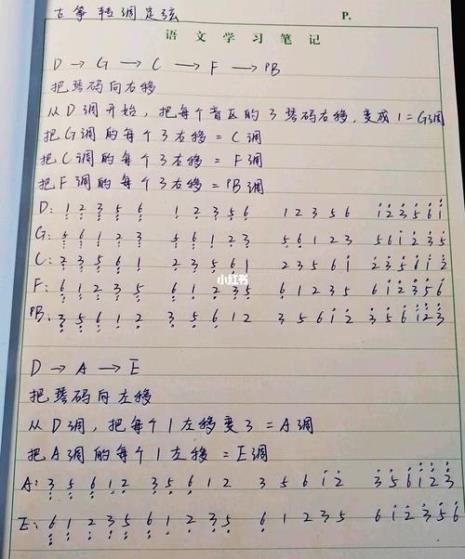 古筝转调是弦 P.
语文学习笔记
D → G → C → F → ♭B
把琴码向右移
从D调开始，把每个音区的3琴码右移，变成1=G调
把G调的每个3右移=C调
把C调的每个3右移=F调
把F调的每个3右移=♭B调
D: 1 2 3 5 6 1 2 3 5 6 1 2 3 5 6 1 2 3 5 6 1
G: 5 6 1 2 3 5 6 1 2 3 5 6 1 2 3 5 6 1 2 3 5
C: 2 3 5 6 1 2 3 5 6 1 2 3 5 6 1 2 3 5 6 1 2
小红书
F: 6 1 2 3 5 6 1 2 3 5 6 1 2 3 5 6 1 2 3 5 6
♭B: 3 5 6 1 2 3 5 6 1 2 3 5 6 1 2 3 5 6 1 2 3
D → A → E
把琴码向左移
从D调，把每个1左移变3=A调
把A调的每个1左移=E调
A: 3 5 6 1 2 3 5 6 1 2 3 5 6 1 2 3 5 6 1 2 3
E: 6 1 2 3 5 6 1 2 3 5 6 1 2 3 5 6 1 2 3 5 6